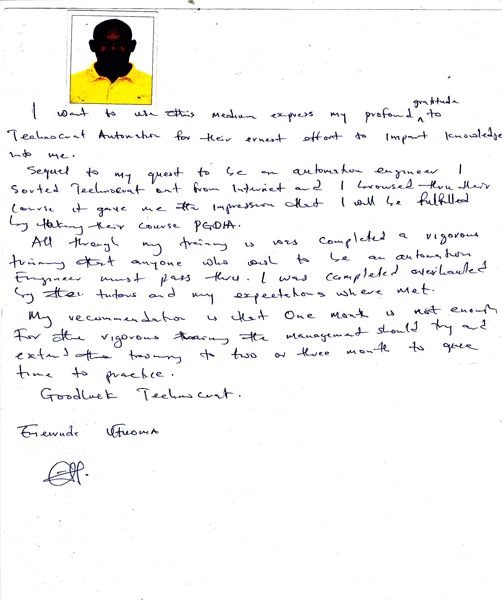 I want to use this medium express my profound gratitude to
Technocrat Automation for their ernest effort to impart knowledge
into me.
Sequel to my quest to be an automation engineer I
Sorted Technocrat out from Internet and I browsed thru their
course it gave me the impression that I will be fulfilled
by taking their course PGDIA.
All through my training it was completed a vigorous
training that anyone who wish to be an automation
Engineer must pass thru. I was completed overhauled
by their tutors and my expectations where met.
My recommendation is that One month is not enough
For the vigorous training the management should try and
extend the training to two or three month to give
time to practice.
Goodluck Technocrat.
Ufuoma